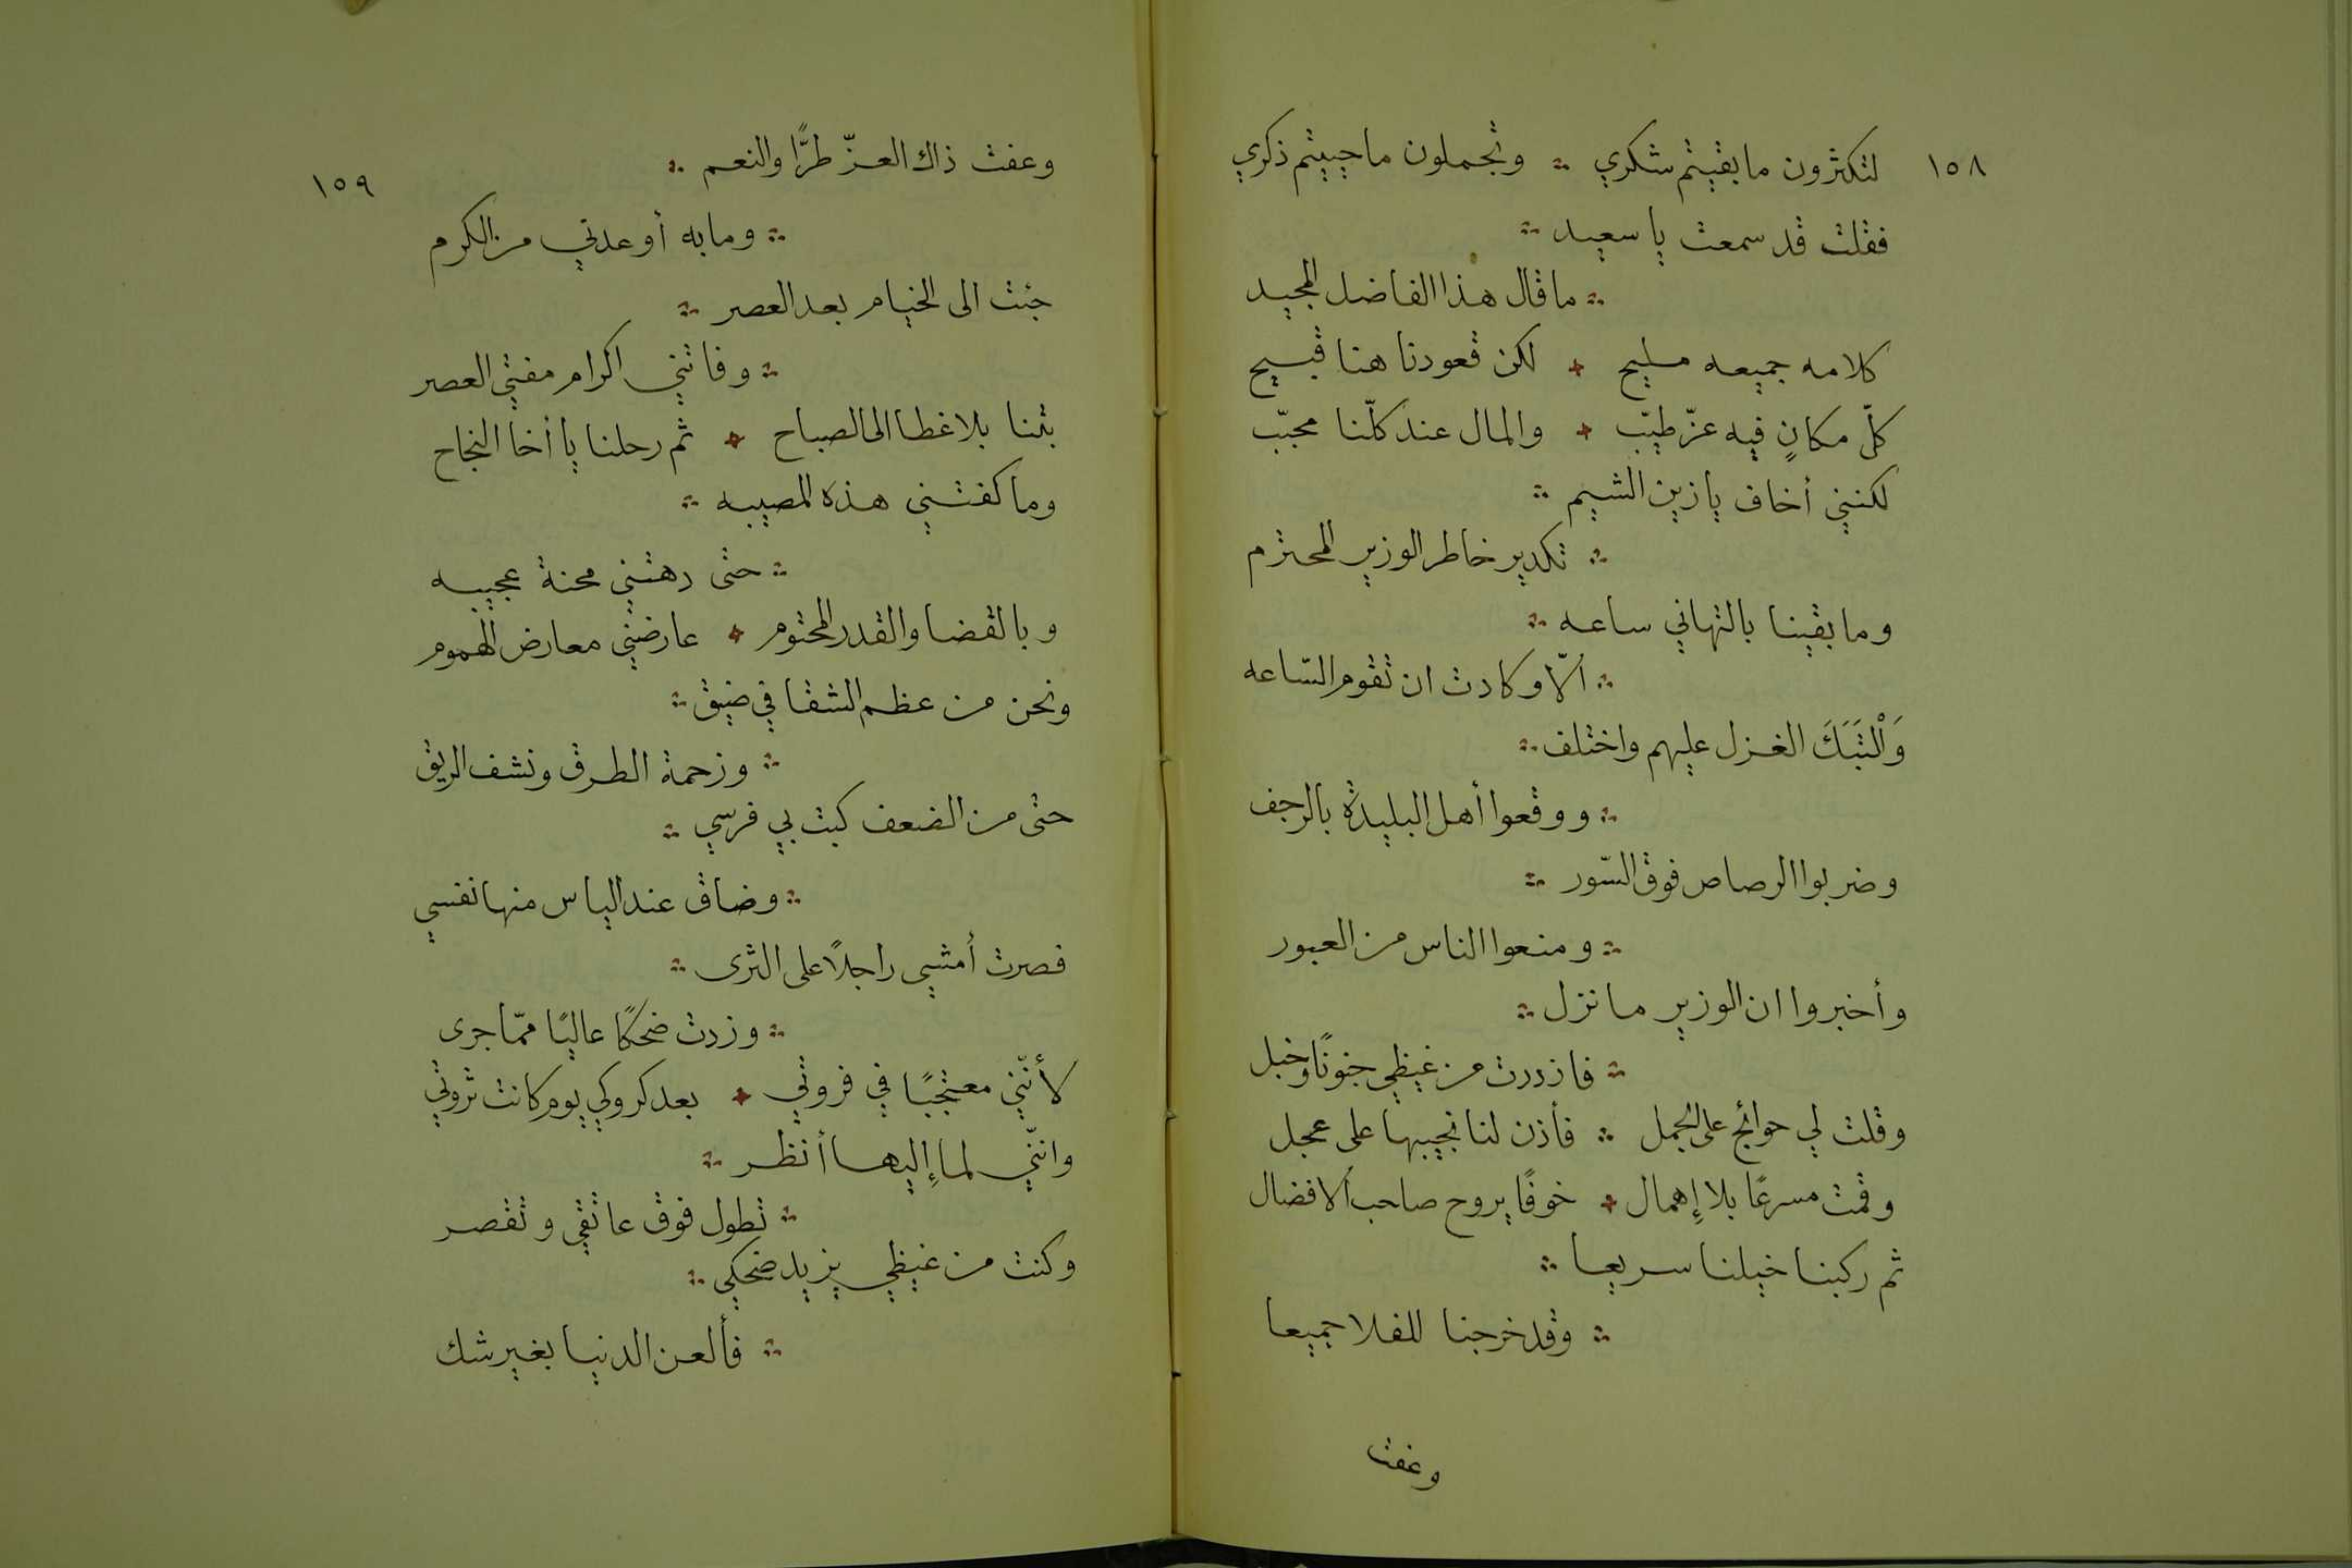 ١٥٨
لتكثرون ما بقيتم شكري ∴ وتجملون ما حييتم ذكري
فقلت قد سمعت يا سعيد ∴
∴ ما قال هذا الفاضل المجيد
كلامه جميعه مليح + لكن قعودنا هنا قبيح
كلّ مكانٍ فيه عزّ طيّب + والمال عند كلّنا محبّب
لكنني أخاف يا زين الشيم ∴
∴ تكدير خاطر الوزير المحترم
وما بقينا بالتهاني ساعه ∴
∴ الّا وكادت ان تقوم السّاعه
وَالْتَبَكَ الغزل عليهم واختلف ∴
∴ ووقعوا أهل البليدة بالرجف
وضربوا الرصاص فوق السّور ∴
∴ ومنعوا الناس من العبور
وأخبروا ان الوزير ما نزل ∴
∴ فازددت من غيظي جنونًا وخبل
وقلت لي حوائج على الجمل ∴ فأذن لنا نجيبها على عجل
وقمت مسرعًا بلا إهمال + خوفًا يروح صاحب ألافضال
ثم ركبنا خيلنا سريعا ∴
∴ وقد خرجنا للفلا جميعا
وعفت
١٥٩
وعفت ذاك العزّ طرًّا والنعم ∴
∴ وما به أوعدني من الكرم
جئت الى الخيام بعد العصر ∴
∴ وفاتني اكرام مفتي العصر
بتنا بلا غطا الى الصباح + ثم رحلنا يا أخا النجاح
وما كفتني هذه المصيبه ∴
∴ حتى دهتني محنة عجيبه
وبالقضا والقدر المحتوم + عارضني معارض الهموم
ونحن من عظم الشقا في ضيق ∴
∴ وزحمة الطرق ونشف الريق
حتى من الضعف كبت بي فرسي ∴
∴ وضاق عند الياس منها نفسي
فصرت أمشي راجلًا على الثرى ∴
∴ وزدت ضحكًا عاليًا ممّا جرى
لأنّني معتجبًا في فروتي + بعد كروكي يوم كانت ثروتي
وانّني لما إليها أنظر ∴
∴ تطول فوق عاتقي وتقصر
وكنت من غيظي يزيد ضحكي ∴
∴ فألعن الدنيا بغير شك